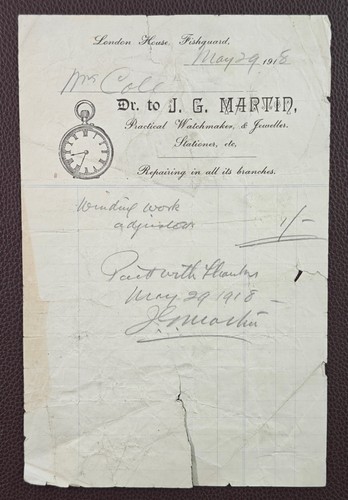 London House, Fishguard,
May 29 1918
Mrs Cole
Dr. to J. G. MARTIN,
Practical Watchmaker, & Jeweller.
Stationer, etc,
Repairing in all its branches.
Winding work
adjusted 1/-
Paid with thanks
May 29 1918
J. G. Martin